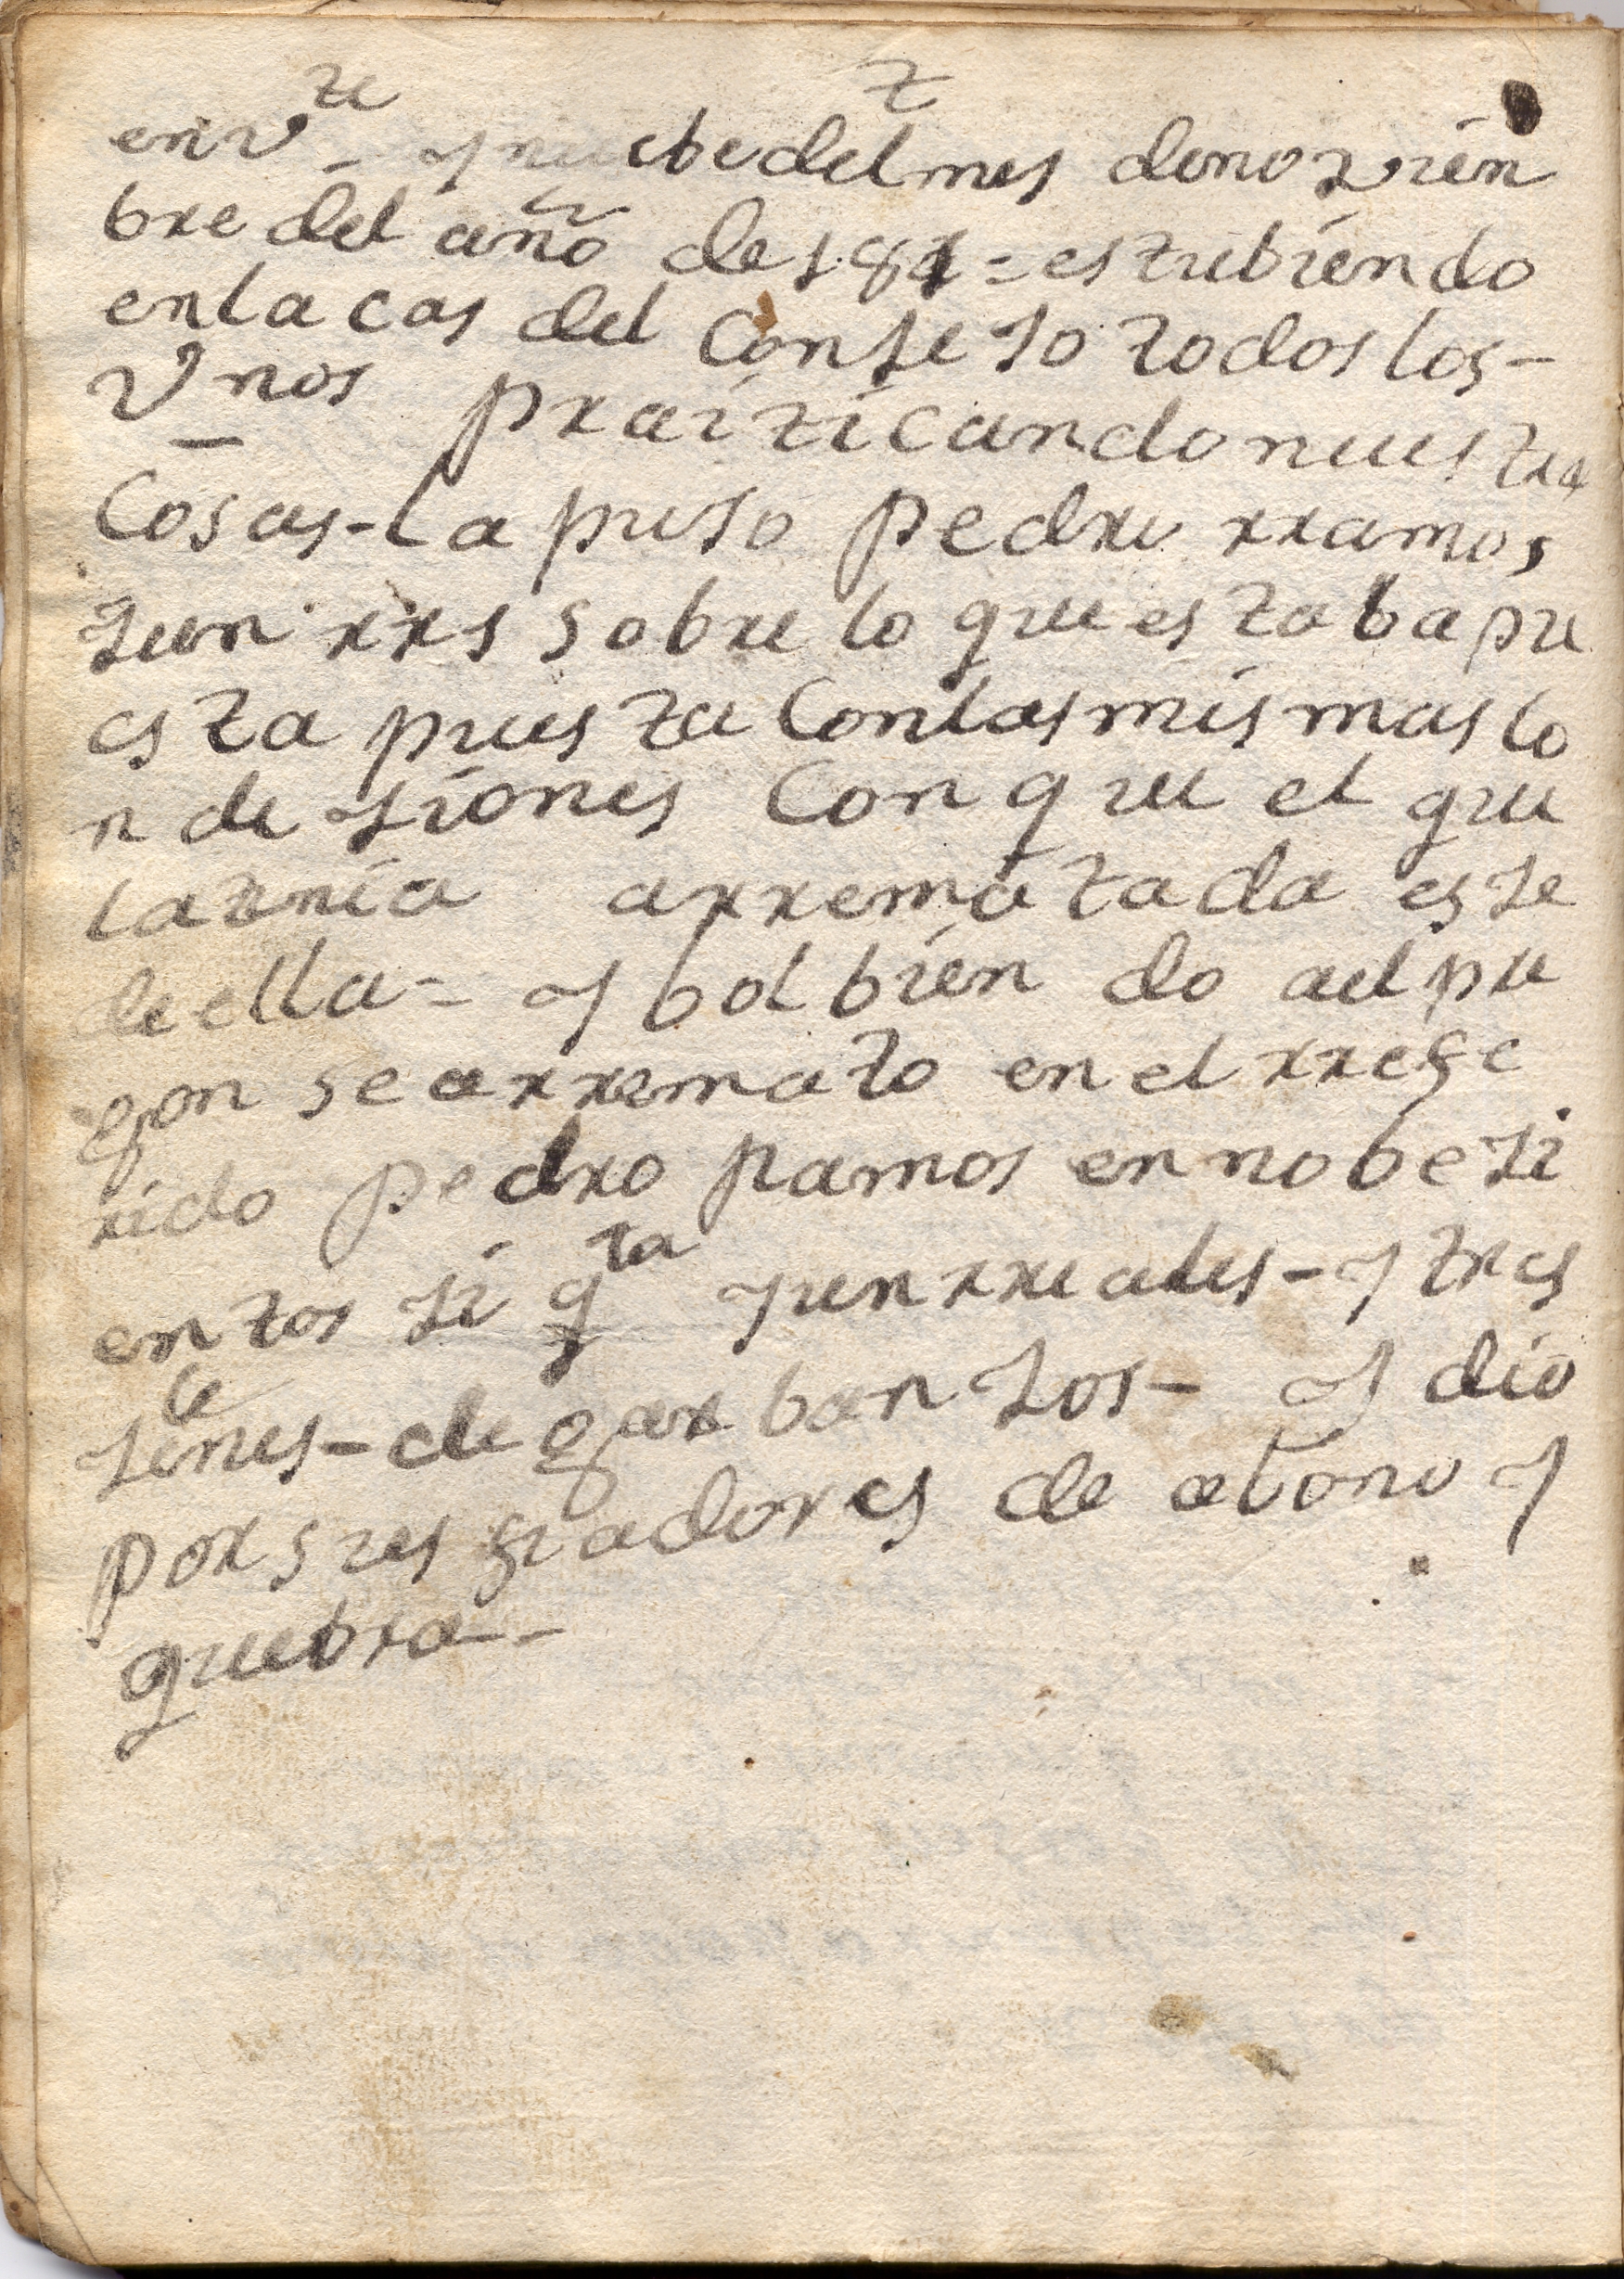 en v^te - y nuebe del mes de nozvien
bre del año de 181 = estubiendo
en la cas del Conseso todos los -
Vnos praiticando nuestra
Cosas - la puso pedru rramos
zun rrs sobre lo que estaba pu
esta puesta Con las mismas co
n de siones Con que el que
la tenia arrematada esse
de ella - y bolbien do a el pre
gon se arremato en el rrefe
rido pedro Ramos en nobesi
entos si q^ta y un rreales - y tres
zeles - de garbanzos - y dio
por sus fiadores de abono y
quebra -